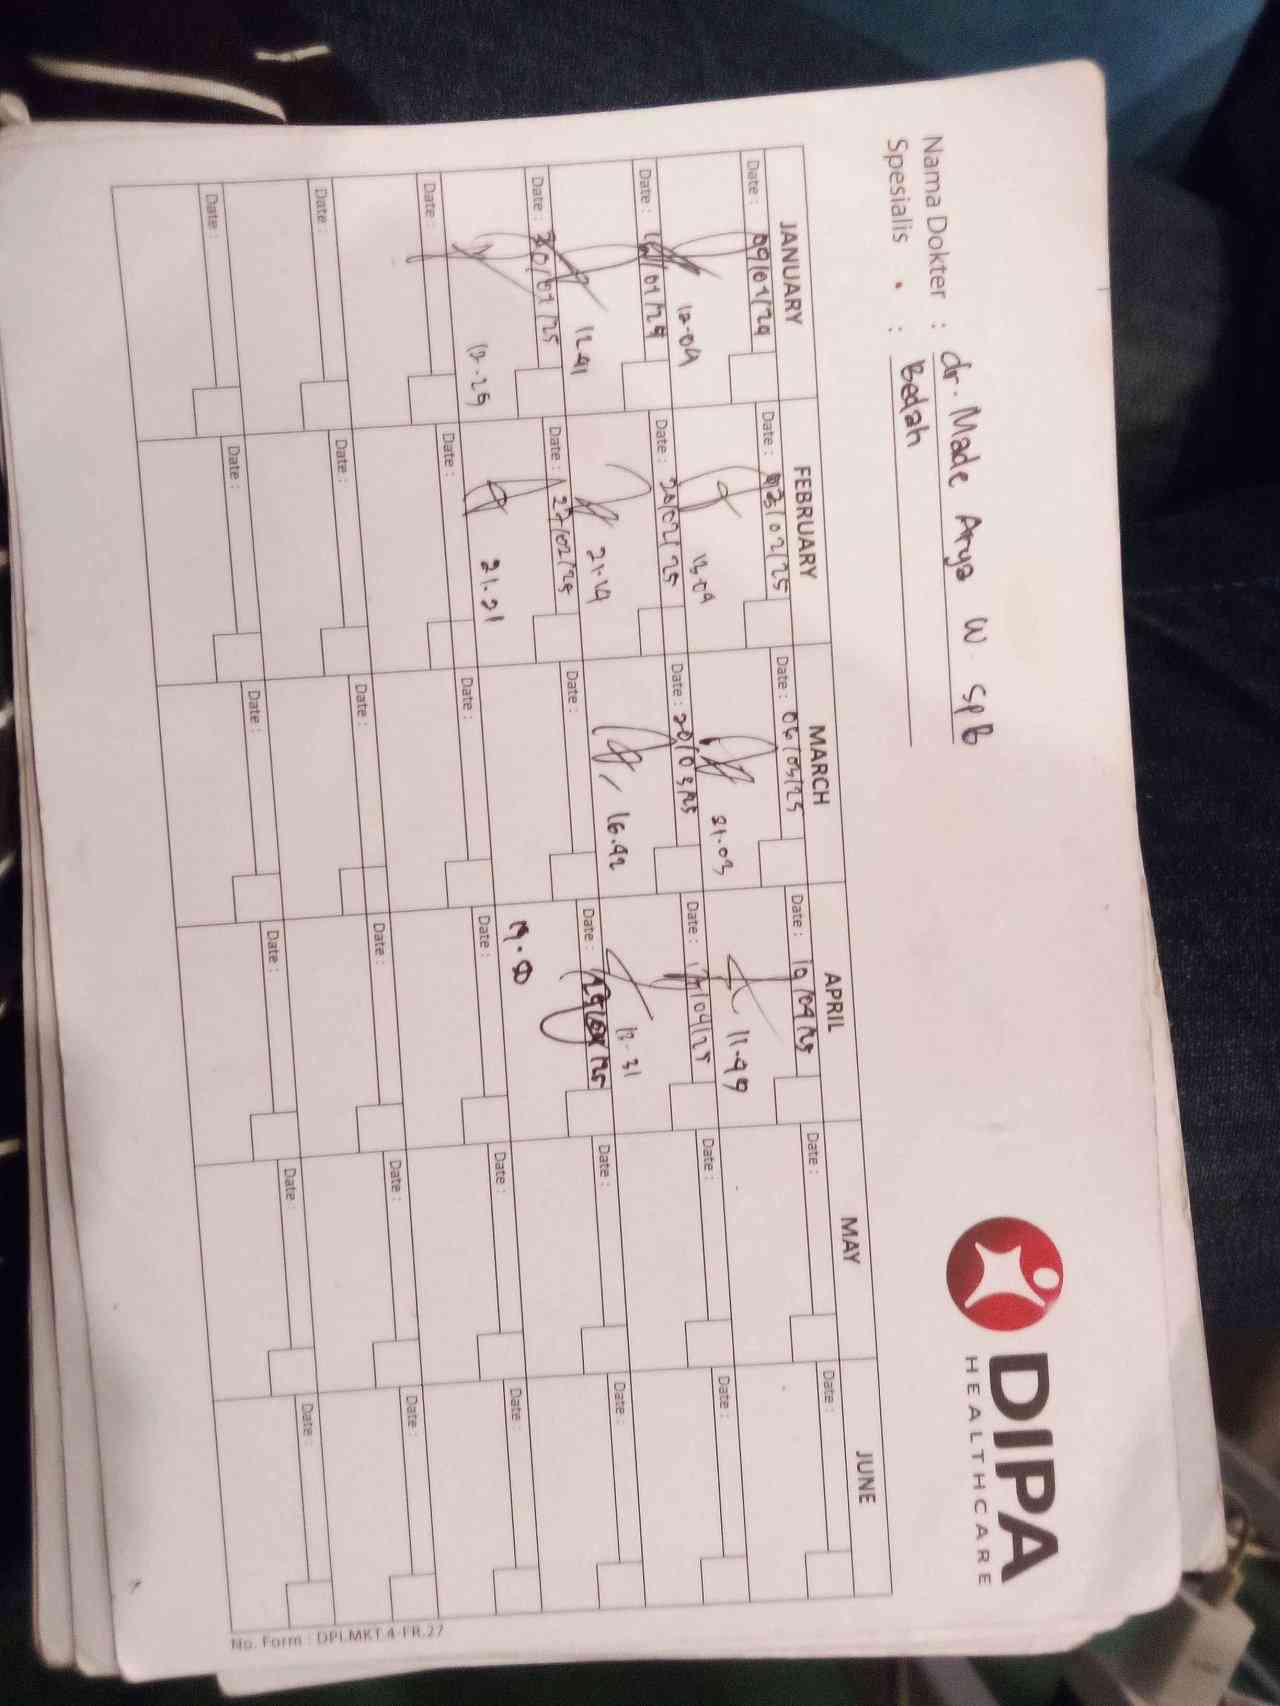 Nama Dokter : dr. Made Arya W. SpB
Spesialis : Bedah
DIPA
HEALTHCARE
JANUARY FEBRUARY MARCH APRIL MAY JUNE
Date : 09/01/24 Date : 13/02/25 Date : 06/03/25 Date : 10/04/25 Date : Date :
12.04 13.04 21.03 11.49
Date : 16/01/24 Date : 20/02/25 Date : 20/03/25 Date : 17/04/25 Date : Date :
12.41 21.14 16.42 12.31
Date : 30/01/25 Date : 27/02/25 Date : Date : Date : Date :
12.25 21.21
Date : Date : Date : Date : Date : Date :
Date : Date : Date : Date : Date : Date :
Date : Date : Date : Date : Date : Date :
No. Form : DPI.MKT.4-FR.27